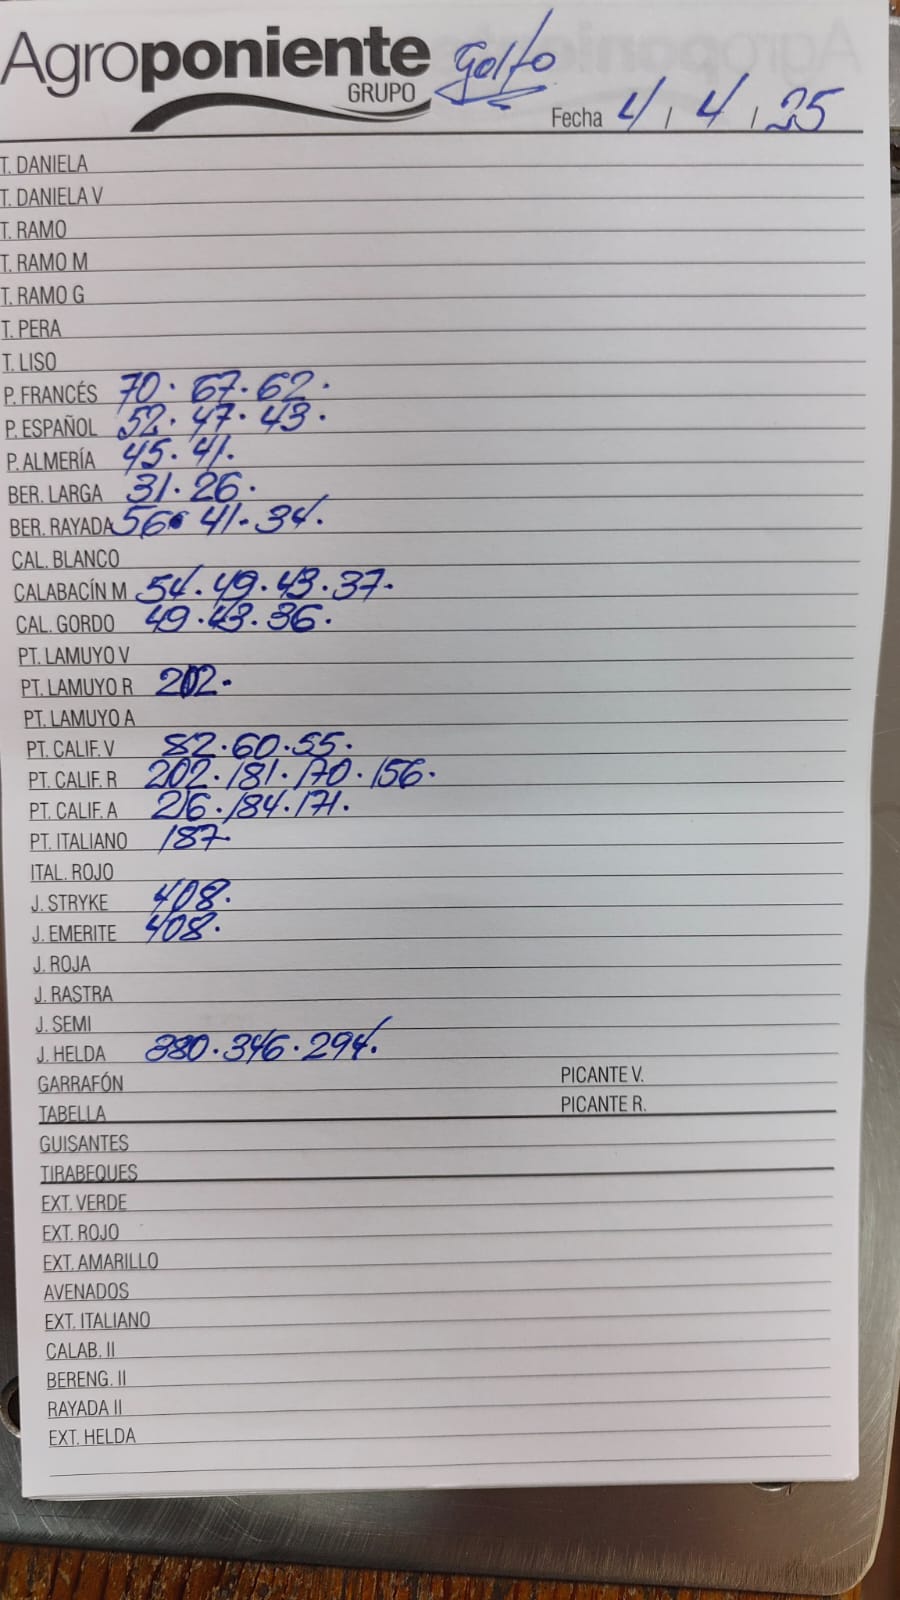 Agroponiente Golfo
GRUPO
Fecha 4 / 4 / 25
T. DANIELA
T. DANIELA V
T. RAMO
T. RAMO M
T. RAMO G
T. PERA
T. LISO
P. FRANCÉS 70. 67. 62.
P. ESPAÑOL 52. 47. 43.
P. ALMERÍA 45. 41.
BER. LARGA 31. 26.
BER. RAYADA 56. 41. 34.
CAL. BLANCO
CALABACÍN M 54. 49. 43. 37.
CAL. GORDO 49. 43. 36.
PT. LAMUYO V
PT. LAMUYO R 202.
PT. LAMUYO A
PT. CALIF. V 82. 60. 55.
PT. CALIF. R 202. 181. 170. 156.
PT. CALIF. A 216. 184. 171.
PT. ITALIANO 187.
ITAL. ROJO
J. STRYKE 408.
J. EMERITE 408.
J. ROJA
J. RASTRA
J. SEMI
J. HELDA 380. 346. 294.
GARRAFÓN PICANTE V.
TABELLA PICANTE R.
GUISANTES
TIRABEQUES
EXT. VERDE
EXT. ROJO
EXT. AMARILLO
AVENADOS
EXT. ITALIANO
CALAB. II
BERENG. II
RAYADA II
EXT. HELDA